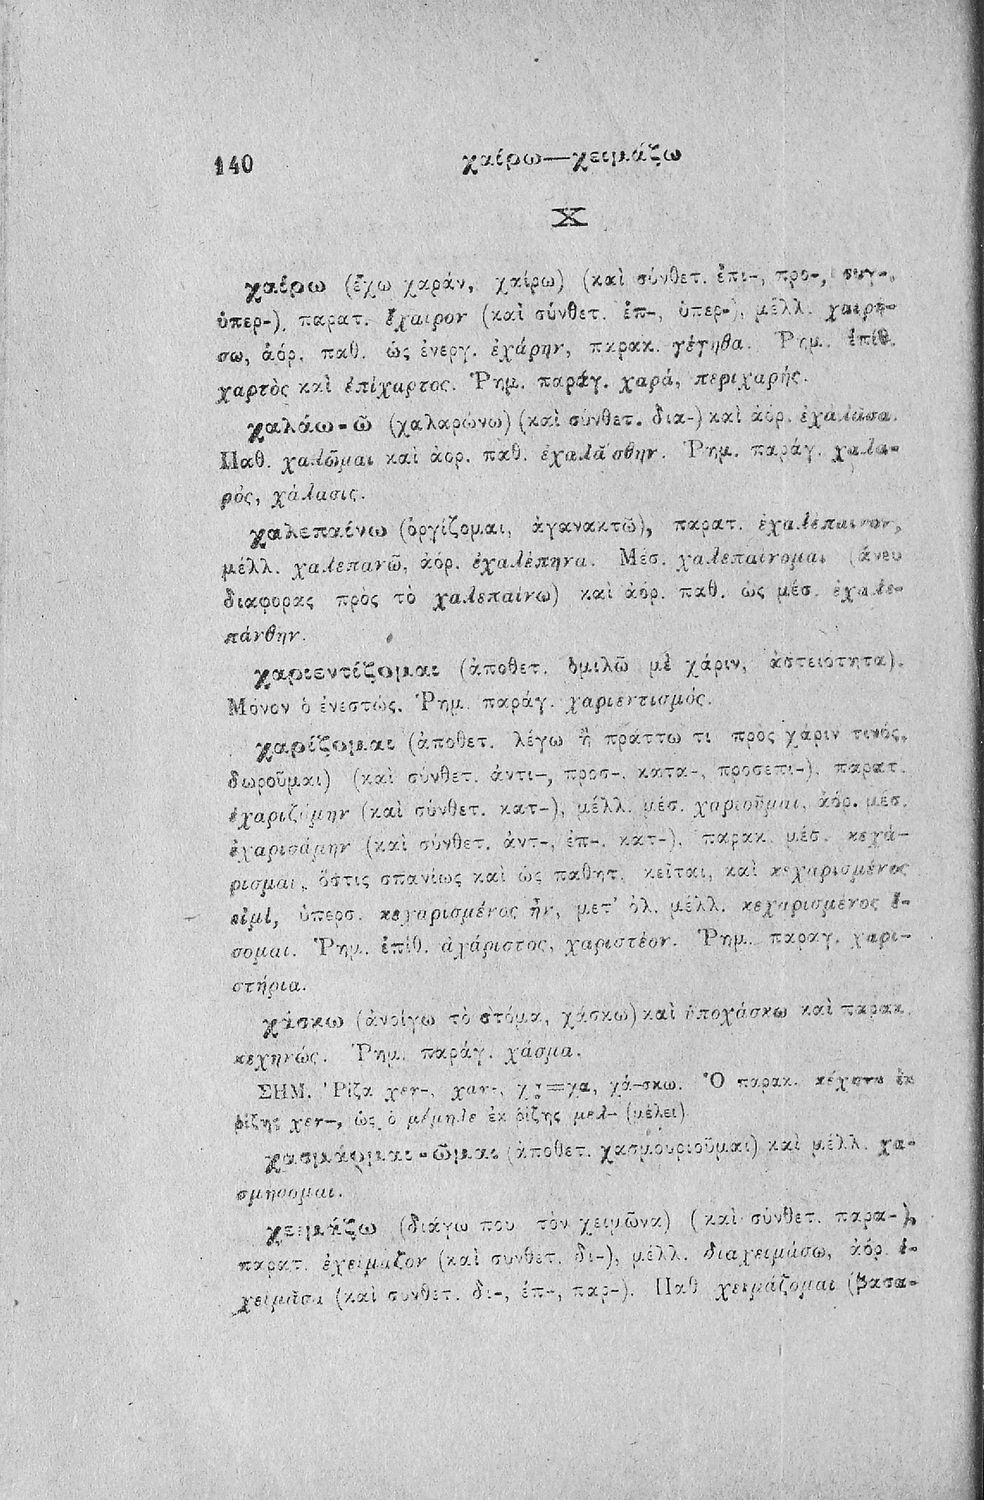 140
χαίρω—χειμάζω
Χ
χαίρω (ἔχω χαράν, χαίρω) (καὶ σύνθετ. ἐπι-, προ-, συγ-,
ὑπερ-), παρατ. ἔχαιρον (καὶ σύνθετ. ἐπ-, ὑπερ-), μέλλ. χαιρή-
σω, ἀόρ. παθ. ὡς ἐνεργ. ἐχάρην, παρακ. γέγηθα. Ῥημ. ἐπίθ.
χαρτὸς καὶ ἐπίχαρτος. Ῥημ. παράγ. χαρά, περιχαρής.
χαλάω-ῶ (χαλαρώνω) (καὶ σύνθετ. δια-) καὶ ἀόρ. ἐχάλασα.
Παθ. χαλῶμαι καὶ ἀορ. παθ. ἐχαλάσθην. Ῥημ. παράγ. χαλα-
ρός, χάλασις.
χαλεπαίνω (ὀργίζομαι, ἀγανακτῶ), παρατ. ἐχαλέπαινον,
μέλλ. χαλεπανῶ, ἀόρ. ἐχαλέπηνα. Μέσ. χαλεπαίνομαι (ἄνευ
διαφορας προς τὸ χαλεπαίνω) καὶ ἀόρ. παθ. ὡς μέσ. ἐχαλε-
πάνθην.
χαριεντίζομαι (ἀποθετ. ὁμιλῶ μὲ χάριν, ἀστειοτητα).
Μόνον ὁ ἐνεστώς. Ῥημ. παράγ. χαριεντισμός.
χαρίζομαι (ἀποθετ. λέγω ἢ πράττω τι πρὸς χάριν τινός,
δωροῦμαι) (καὶ σύνθετ. ἀντι-, προσ-, κατα-, προσεπι-), παρατ.
ἐχαριζόμην (καὶ σύνθετ. κατ-), μέλλ. μέσ. χαριοῦμαι, ἀόρ. μέσ.
ἐχαρισάμην (καὶ σύνθετ. ἀντ-, ἐπ-, κατ-), παρακ. μέσ. κεχά-
ρισμαι, ὅστις σπανίως καὶ ὡς παθητ. κεῖται, καὶ κεχαρισμένος
εἰμί, ὑπερσ. κεχαρισμένος ἦν, μετ' ὀλ. μέλλ. κεχαρισμένος ἔ-
σομαι. Ῥημ. ἐπίθ. ἀχάριστος, χαριστέον. Ῥημ. παραγ. χαρι-
στήρια.
χάσκω (ἀνοίγω τὸ στόμα, χάσκω) καὶ ὑποχάσκω καὶ παρακ.
κεχηνώς. Ῥημ. παράγ. χάσμα.
ΣΗΜ. Ῥίζα χεν-, χαν-, =χα, χά-σκω. Ὁ παρακ. κέχηνα ἐκ
ῥίζης χεν-, ὡς ὁ μέμηλε ἐκ ῥίζης μελ- (μέλει)
χασμάομαι-ῶμαι (ἀποθετ. χασμουριοῦμαι) καὶ μέλλ. χα-
σμήσομαι.
χειμάζω (διάγω που τὸν χειμῶνα) (καὶ σύνθετ. παρα-),
παρατ. ἐχείμαζον (καὶ συνθετ. δι-), μέλλ. διαχειμάσω, ἀόρ. ἐ-
χείμασα (καὶ συνθετ. δι-, ἐπ-, παρ-). Παθ χειμάζομαι (βασα-